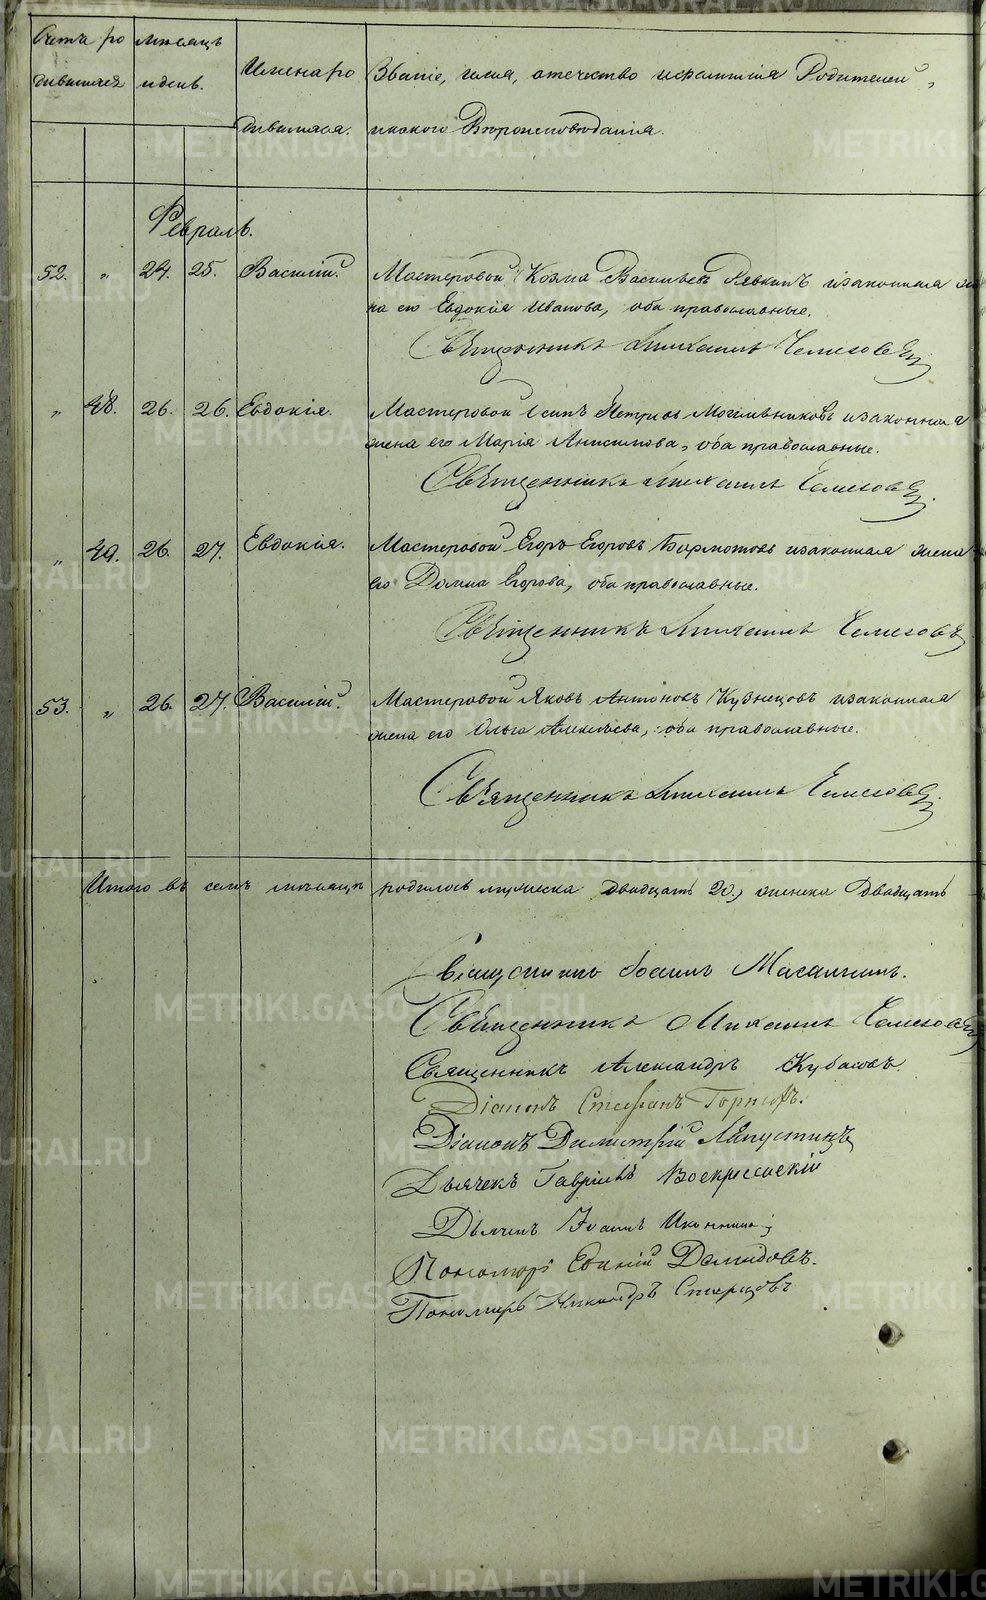 Счетъ ро
дившихся
мѣсяцъ
и день.
Имена ро
дившихся.
Званіе, имя, отечество и фамилія Родителей,
и какого Вѣроисповѣданія.
Февраль.
52. " 24. 25. Василій. Мастеровой Козма Васильевъ Рябкинъ и законная же
на его Евдокія Иванова, оба православные.
Священникъ Михаилъ Челисовъ
" 48. 26. 26. Евдокія. Мастеровой Осипъ Петровъ Могильниковъ и законная
жена его Марія Анисимова, оба православные.
Священникъ Михаилъ
" 49. 26. 27. Евдокія. Мастеровой Егоръ Егоровъ Бармотовъ и законная жена
его Домна Егорова, оба православные.
Священникъ Михаилъ
53. " 26. 27. Василій. Мастеровой Яковъ Антоновъ Кузнецовъ и законная
жена его Ольга Алексѣева, оба православные.
Священникъ Михаилъ
Итого въ семъ мѣсяцѣ родилось мужеска двадцать 20, женска двадцать
Священникъ Іоаннъ
Священникъ Михаилъ
Священникъ Александръ
Діаконъ Стефанъ
Діаконъ Димитрій Ляпустинъ
Дьячекъ Гавріилъ Воскресенскій
Дьячекъ Іоаннъ
Пономарь Евгеній Демидовъ.
Пономарь Никандръ Старцовъ
METRIKI.GASO-URAL.RU